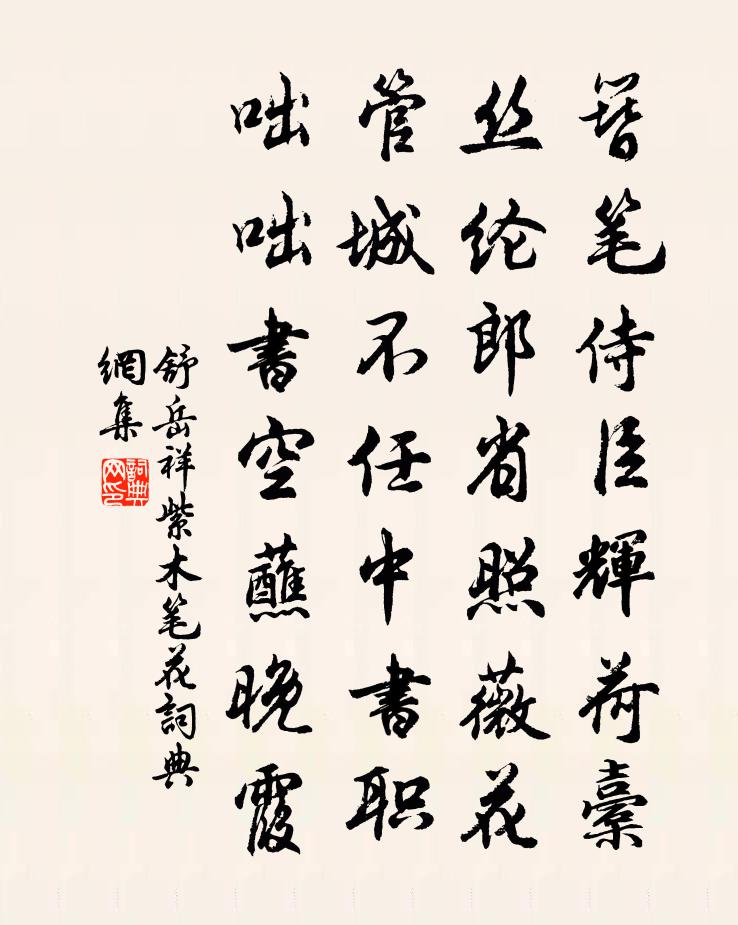 簪笔侍臣輝荷橐
丝纶郎省照薇花
管城不任中書职
咄咄書空蘸晚霞
舒岳祥紫木笔花詞典
網集
詞典网印